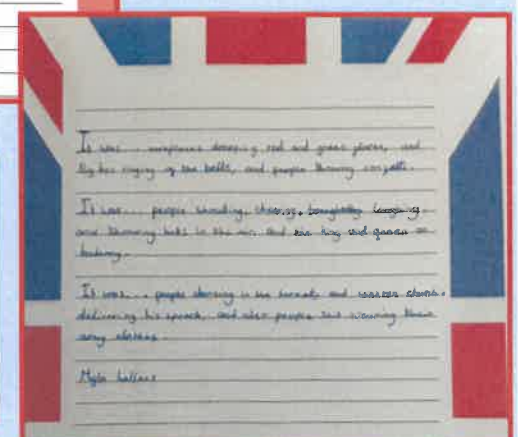 It was... aeroplanes dropping red and green flares, and
ringing of the bells, and people throwing confetti.
It was... people shouting, cheering,
and throwing hats in the air and king and queen on
balcony.
It was... people dancing in the streets and
delivering his speech, and also people still wearing their
army clothes.